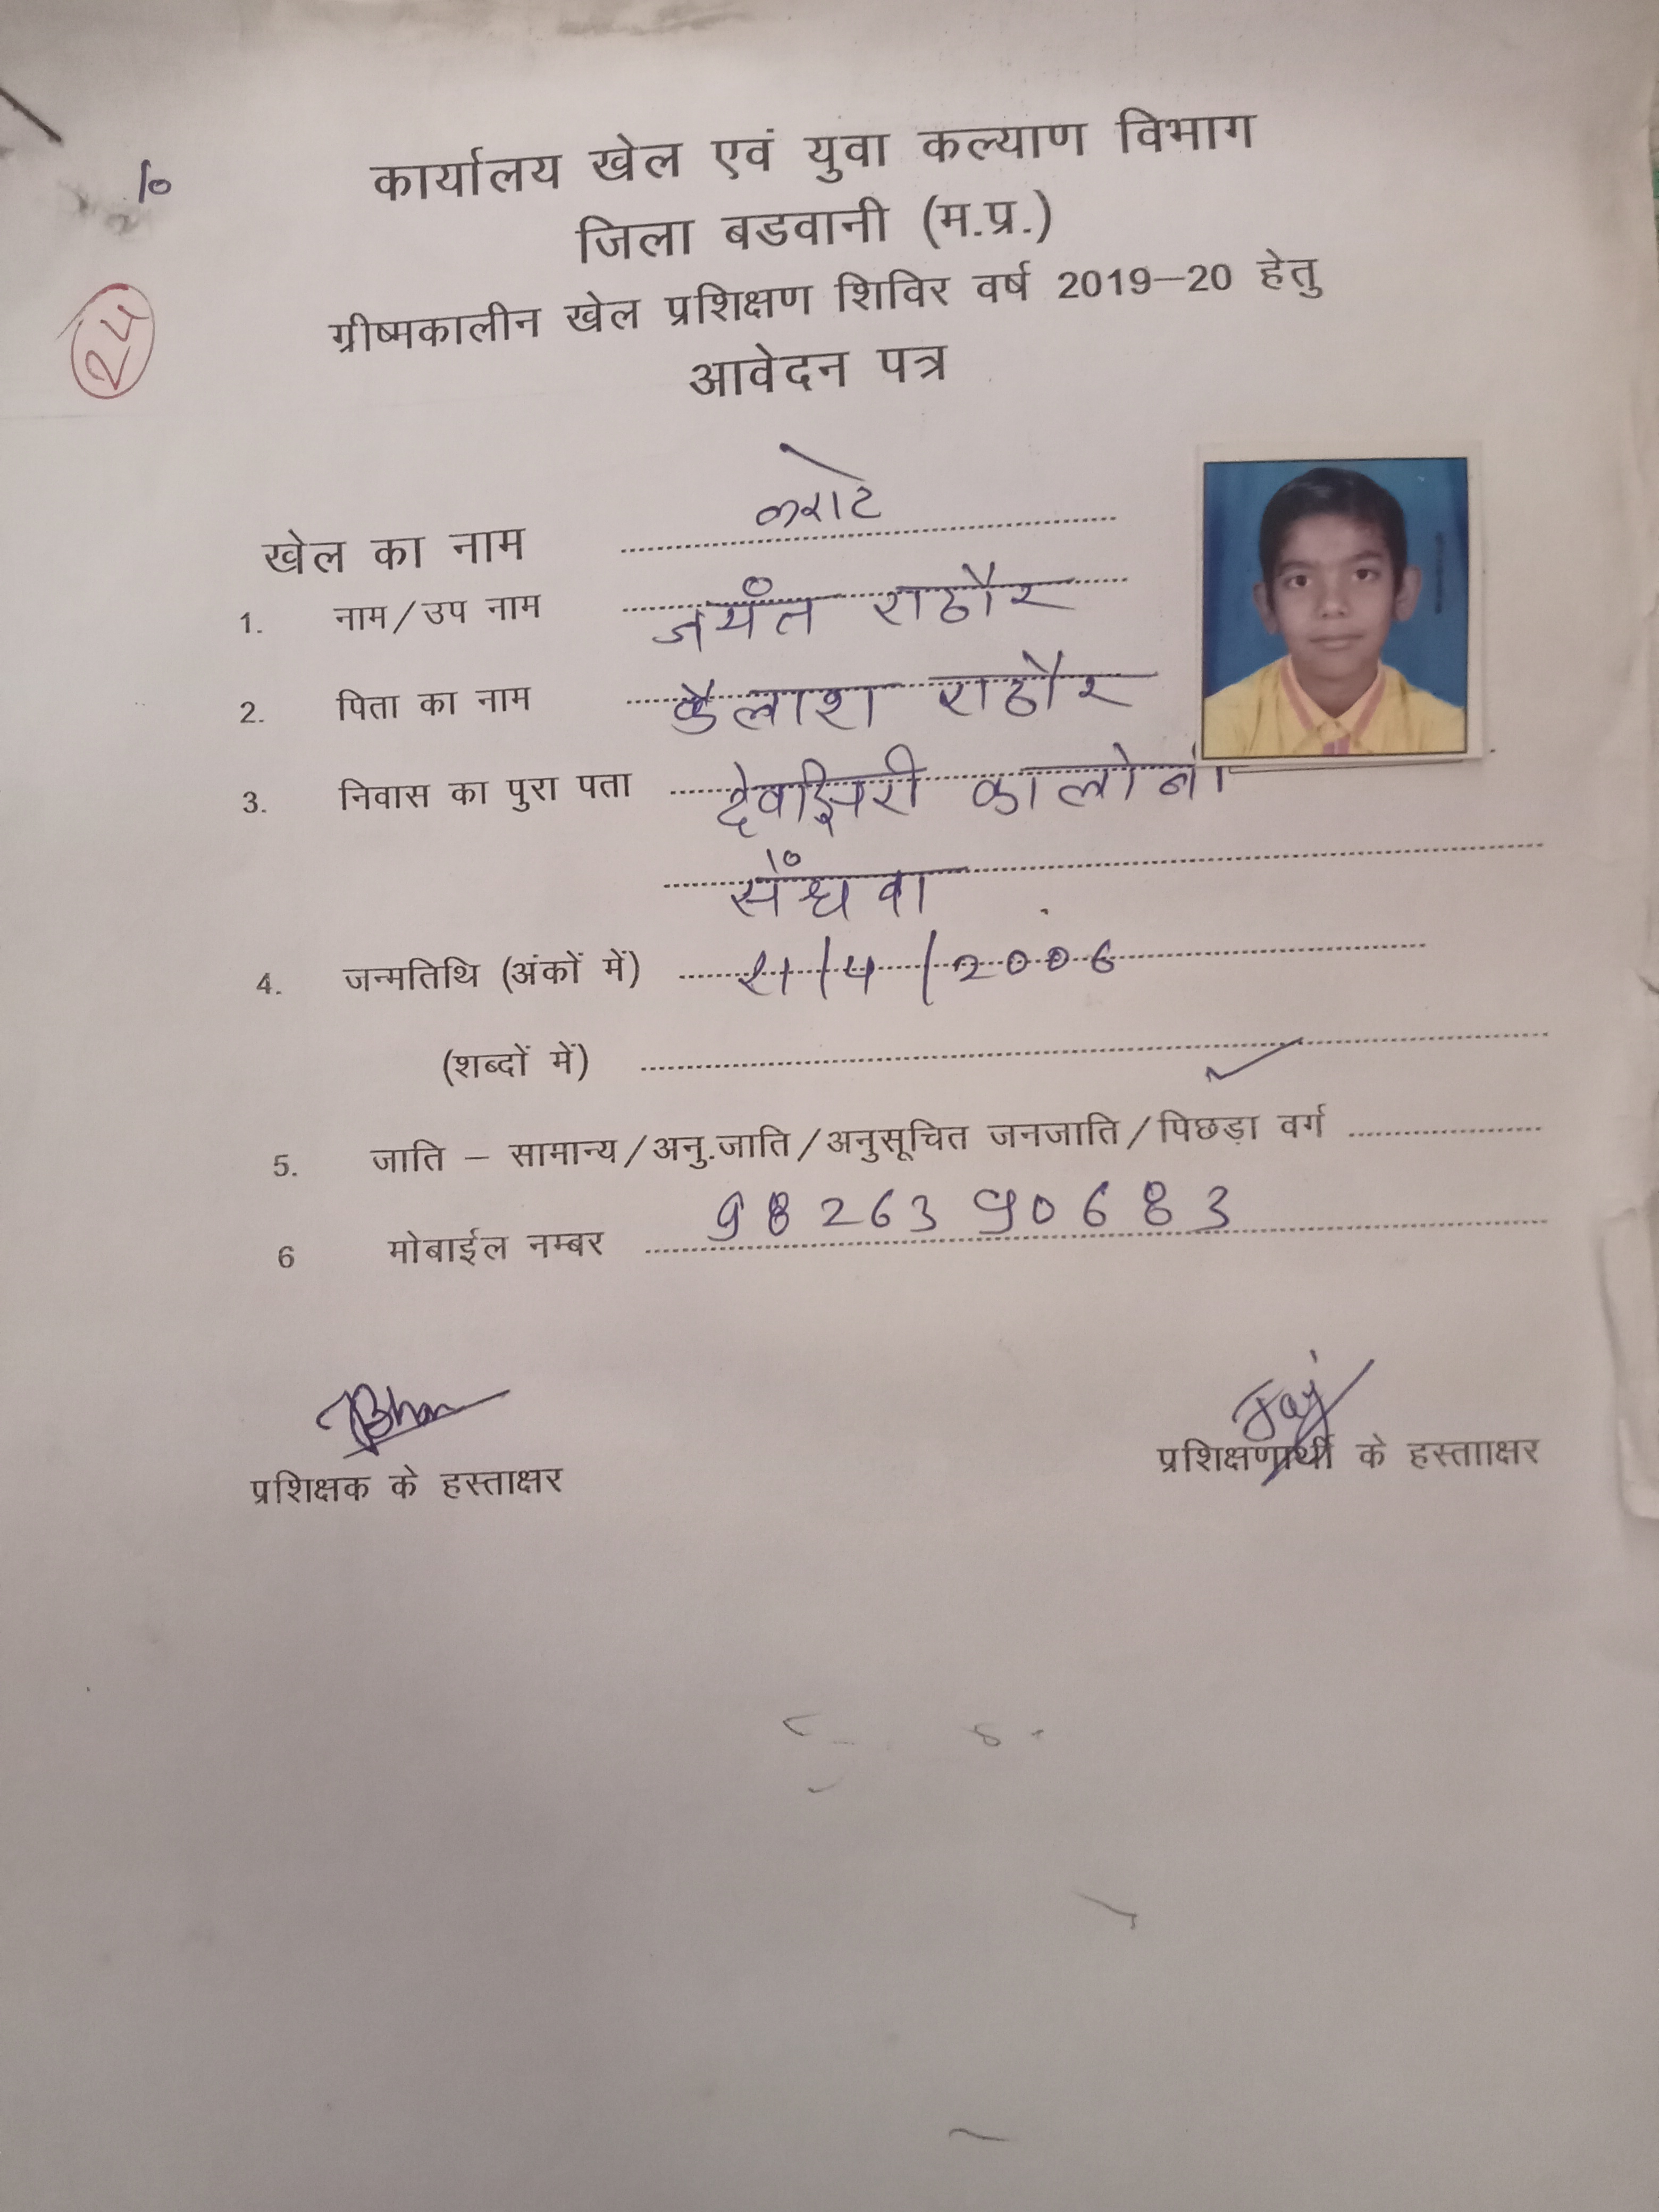 10
कार्यालय खेल एवं युवा कल्याण विभाग
जिला बडवानी (म.प्र.)
ग्रीष्मकालीन खेल प्रशिक्षण शिविर वर्ष 2019–20 हेतु
24
आवेदन पत्र
खेल का नाम कराटे
1. नाम/उप नाम जयंत राठौर
2. पिता का नाम कैलाश राठौर
3. निवास का पुरा पता देवझिरी कालोनी
सेंधवा
4. जन्मतिथि (अंकों में) 21/4/2006
(शब्दों में)
5. जाति – सामान्य/अनु.जाति/अनुसूचित जनजाति/पिछड़ा वर्ग
6 मोबाईल नम्बर 9826390683
Jay
प्रशिक्षक के हस्ताक्षर प्रशिक्षणार्थी के हस्तााक्षर